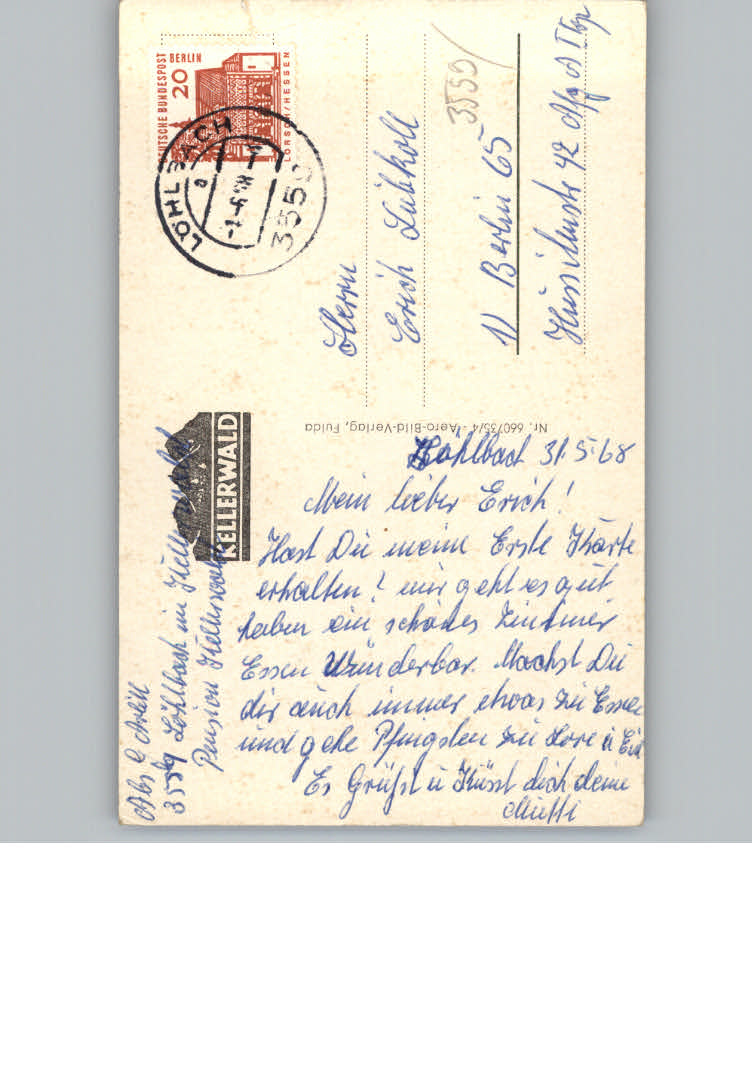 Löhlbach 31.5.68
Mein lieber Erich!
Hast Du meine Erste Karte
erhalten? mir geht es gut
haben ein schönes Zimmer
Essen Wunderbar. Machst Du
dir auch immer etwas zu Essen
und gehe Pfingsten zu Lore u
Es Grüßt u Küsst dich deine
Mutti
Abs
3559 Löhlbach im Kellerwald
Pension Kellerwald
KELLERWALD
Nr. 660735/4 - Aero-Bild-Verlag, Fulda
DEUTSCHE BUNDESPOST BERLIN
20
LORSCH/HESSEN
LÖHLBACH
a
3559
3559
Herrn
Erich Lübkoll
1/ Berlin 65
Hussitenstr 42